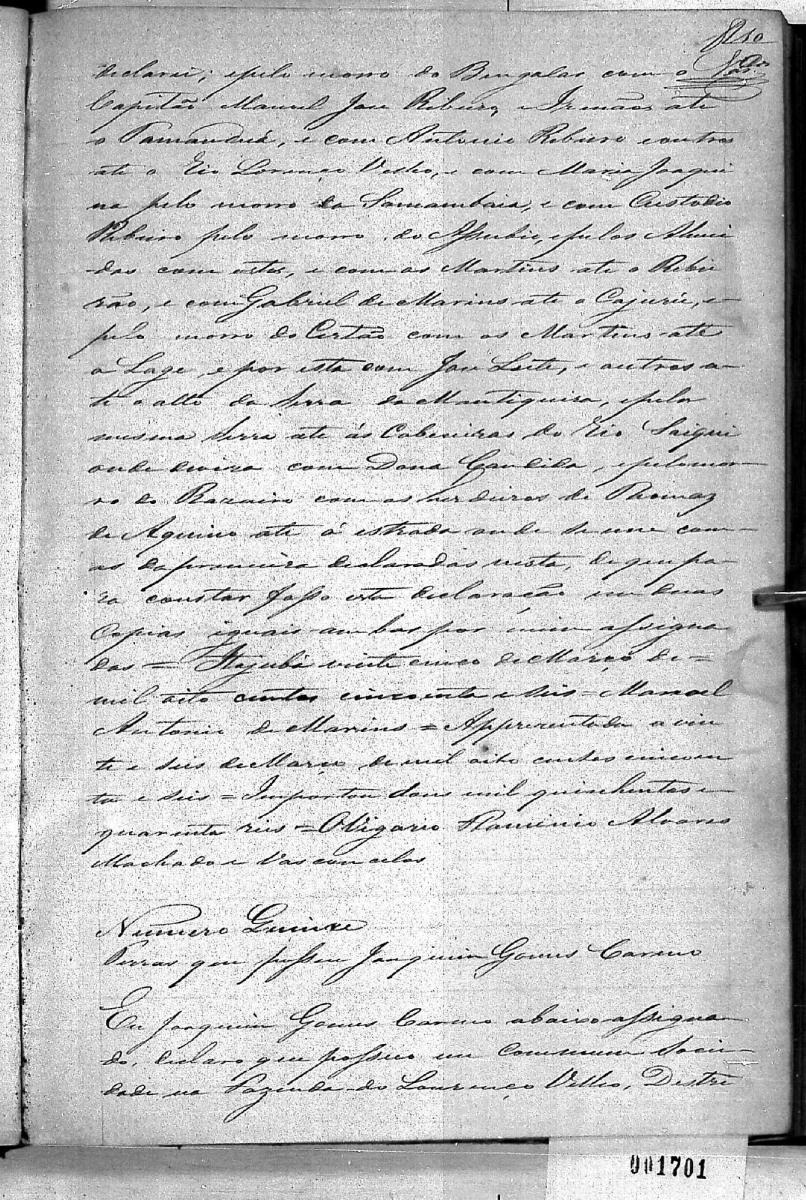 declarei; e pelo morro do Bengalas com o
Capitão Manoel Jose Ribeiro, e Irmãos até
o Tamanduá, e com Antonio Ribeiro e outros
ate o Rio Lorenço Velho, e com Maria Joaqui
na pelo morro da Samambaia, e com Custodio
Ribeiro pelo morro do e pelos Almei
das com estes, e com os Martins até o Ribei
rão, e com Gabriel de Marins até o Cajurú, e
pelo morro do Certão com os Martins até
a Lage, e por esta com Jose Leite, e outros a-
te o alto da Serra da Mantiqueira, e pela
mesma Serra até ás Cabeceiras do Rio
onde deviza com Dona Candida, e pelo mor-
ro do com os herdeiros de Thomaz
de Aquino até á estrada onde se une com
as da primeira declaradas nesta, de que pa-
ra constar fasso esta declaração em duas
Copias iguais ambas por mim assigna
das = Itajubá vinte cinco de Março de =
mil oito centos cincoenta e seis = Manoel
Antonio de Marins = Appresentada a vin
te e seis de Março de mil oito centos cincoen
ta e seis = Importou dous mil quinhentos e
quarenta reis = O Vigario Flaminio Alvares
Machado e Vasconcelos
Numero Quinze
Terras que possue Joaquim Gomes
Eu Joaquim Gomes abaixo assigna
do, declaro que possuo em commum Socie
dade na Fazenda do Lourenço Velho, Destri
001701